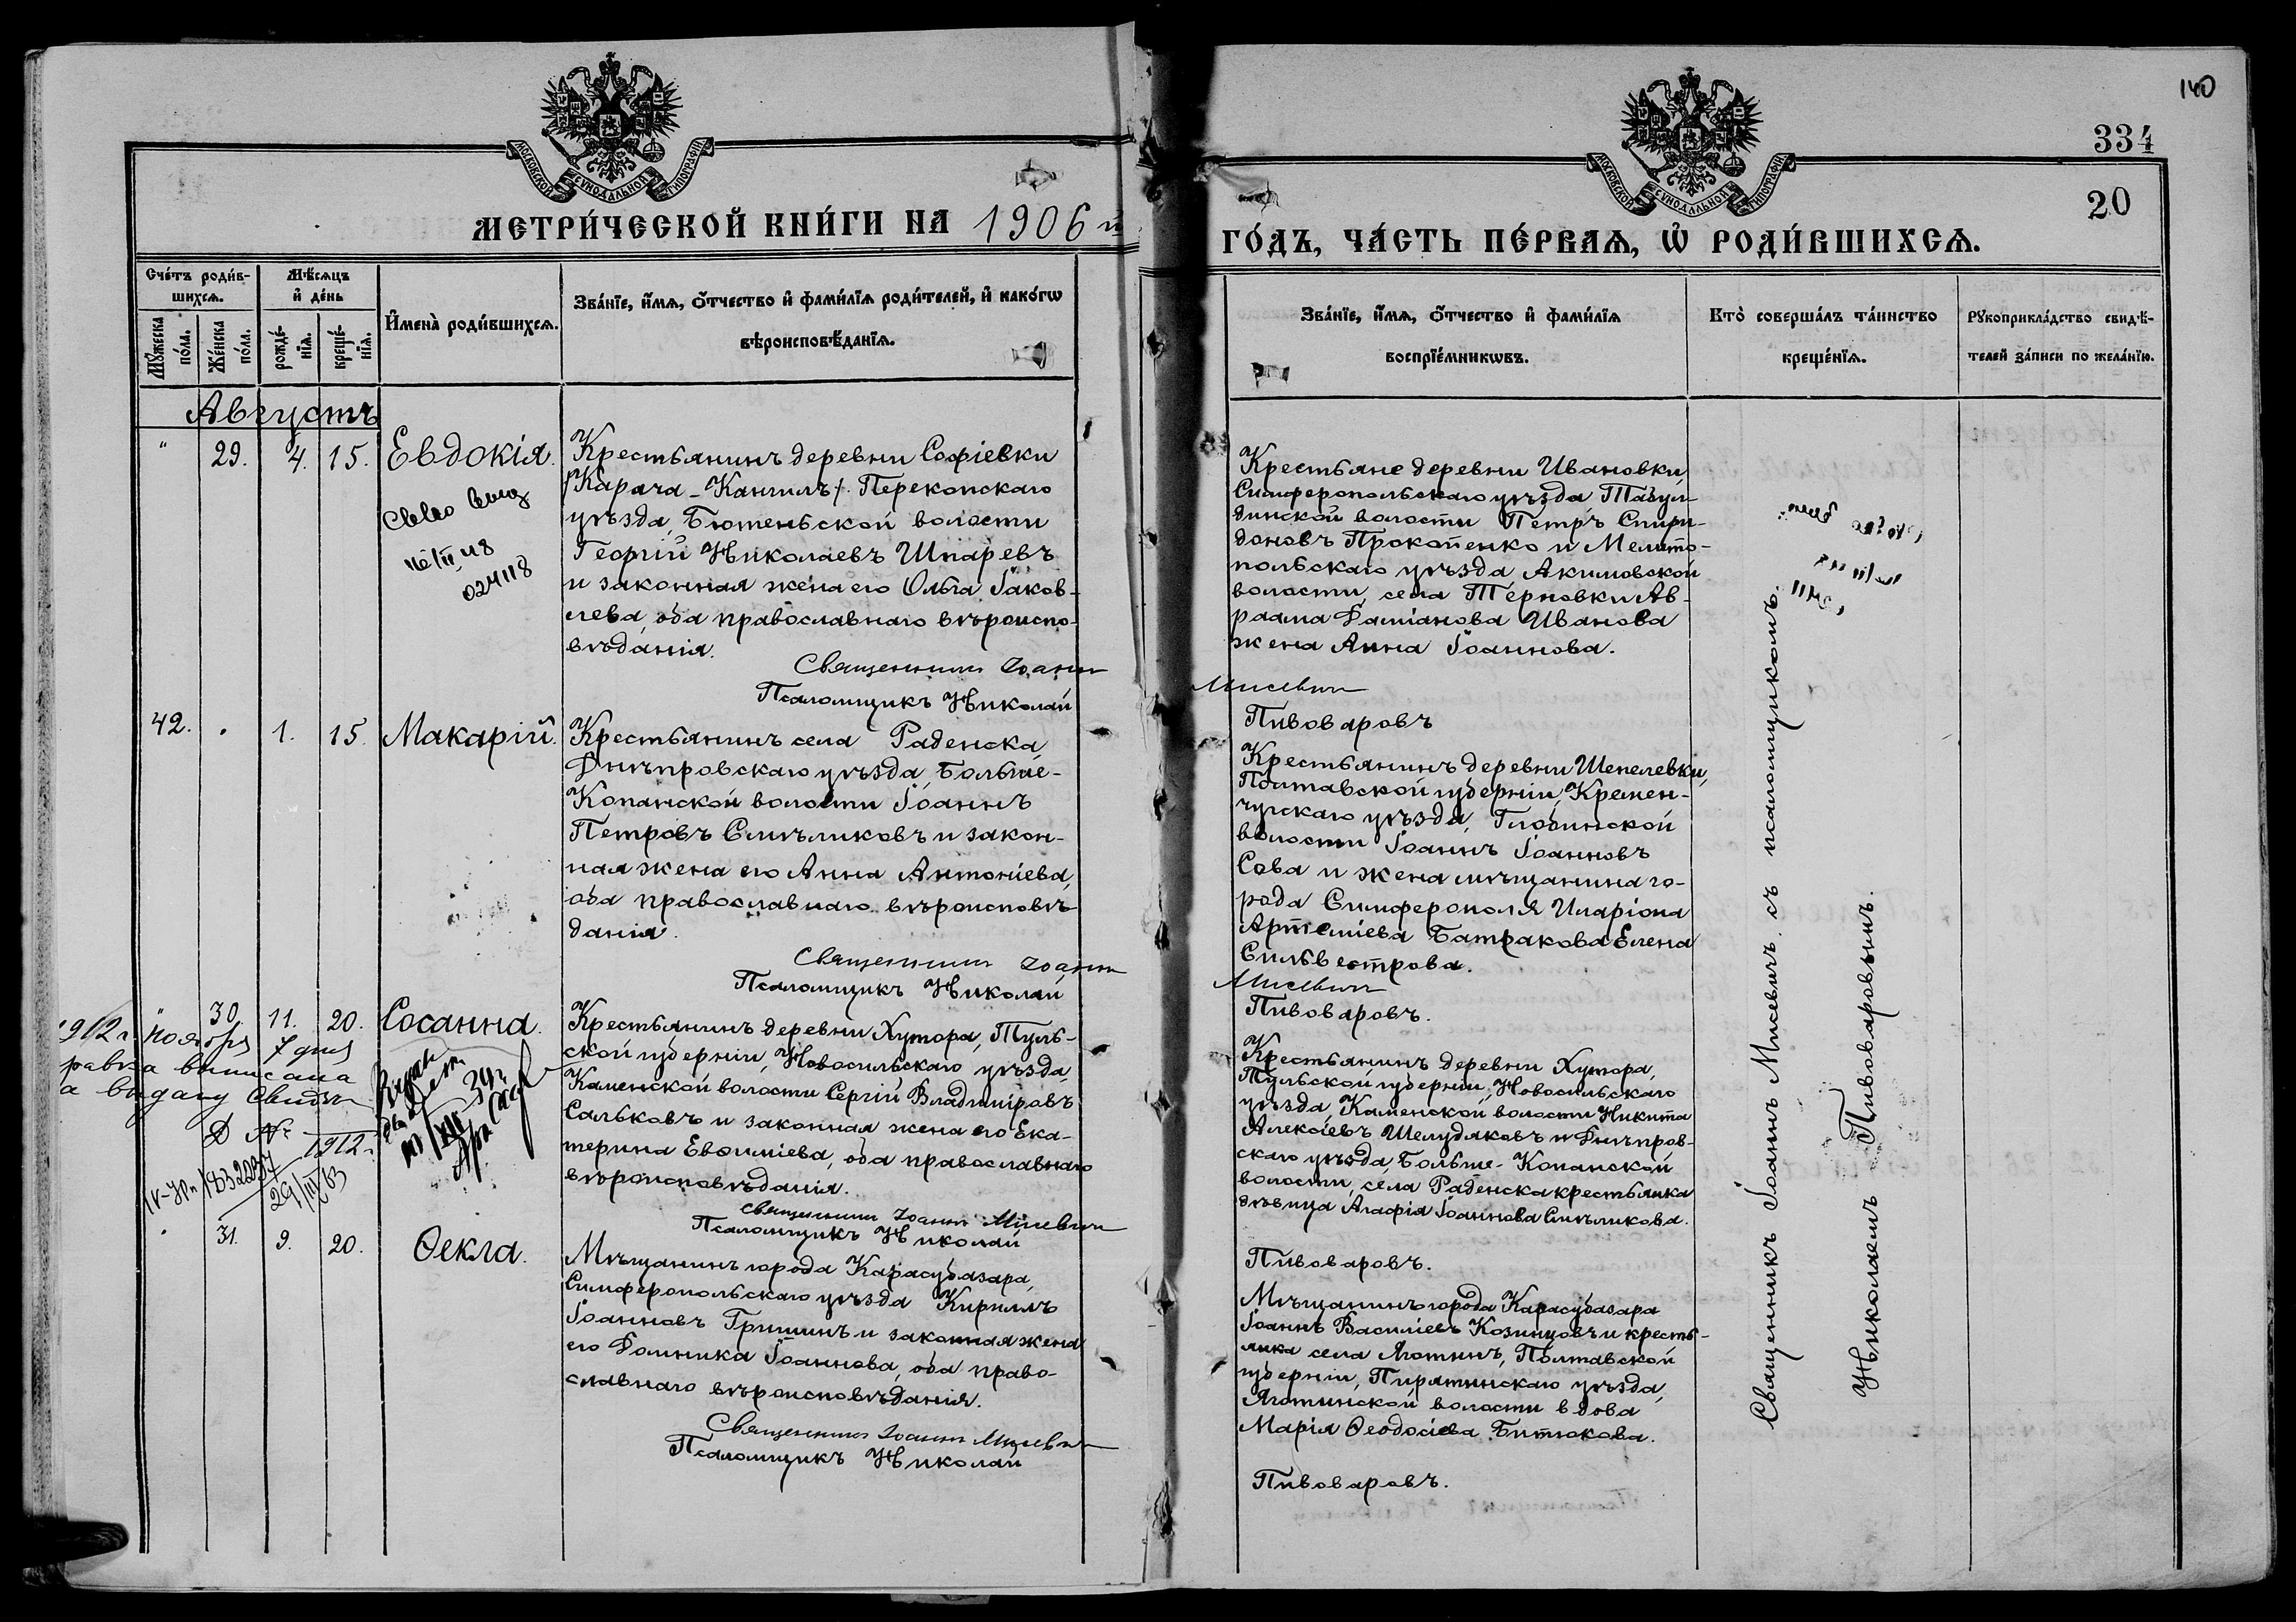 140
334
20
МОСКОВСКОЙ СѴНОДАЛЬНОЙ ТИПОГРАФІИ
МОСКОВСКОЙ СѴНОДАЛЬНОЙ ТИПОГРАФІИ
МЕТРИ́ЧЕСКОЙ КНИ́ГИ НА 1906 й
ГО́ДЪ, ЧА́СТЬ ПЕ́РВАѦ, Ѡ҆ РОДИ́ВШИХСѦ.
Сче́тъ роди́в-
шихсѧ.
Мꙋ́жеска
по́ла.
Же́нска
по́ла.
Мѣ́сѧцъ
и҆ де́нь
рожде́-
нїѧ.
креще́-
нїѧ.
И҆мена̀ роди́вшихсѧ.
Зва́нїе, и҆́мѧ, ѻ҆́тчество и҆ фами́лїѧ роди́телей, и҆ како́гѡ
вѣроисповѣ́данїѧ.
Зва́нїе, и҆́мѧ, ѻ҆́тчество и҆ фами́лїѧ
воспрїе́мникѡвъ.
Кто̀ соверша́лъ та́инство
креще́нїѧ.
Рꙋкоприкла́дство свидѣ́-
телей за́писи по жела́нїю.
Августъ
" 29. 4. 15. Евдокія.
Крестьянинъ деревни Софіевки
/Карача-Кангилъ/. Перекопскаго
уѣзда, Бютеньской волости
Георгій Николаевъ Шпаревъ
и законная жена его Ольга Іаков-
лева, оба православнаго вѣроиспо-
вѣданія.
Священникъ Іоаннъ Мисевичъ
Псаломщикъ Николай Пивоваровъ
Крестьяне деревни Ивановки,
Симферопольскаго уѣзда, Табул-
динской волости Петръ Спири-
доновъ Прокопенко и Мелито-
польскаго уѣзда, Акимовской
волости, села Терновки Ав-
раама Даміанова Иванова
жена Анна Іоаннова.
024118
42. . 1. 15. Макарій.
Крестьянинъ села Раденска,
Днѣпровскаго уѣзда, Больше-
Копанской волости Іоаннъ
Петровъ Смѣликовъ и закон-
ная жена его Анна Антоніева,
оба православнаго вѣроисповѣ-
данія.
Священникъ Іоаннъ Мисевичъ
Псаломщикъ Николай Пивоваровъ.
Крестьянинъ деревни Шепелевки,
Полтавской губерніи, Кремен-
чугскаго уѣзда, Глобинской
волости Іоаннъ Іоанновъ
Сова и жена мѣщанина го-
рода Симферополя Иларіона
Артеміева Батракова Елена
Сильвестрова.
" 30. 11. 20. Сосанна.
1912 г. ноября 7 дня
равка выписана
а выдачу Свидѣт
1912 г.
Крестьянинъ деревни Хутора, Туль-
ской губерніи, Новосильскаго уѣзда,
Каменской волости Сергій Владиміровъ
Сальковъ и законная жена его Ека-
терина Евѳиміева, оба православнаго
вѣроисповѣданія.
Священникъ Іоаннъ Мисевичъ
Псаломщикъ Николай Пивоваровъ.
Крестьянинъ деревни Хутора,
Тульской губерніи, Новосильскаго
уѣзда, Каменской волости Никита
Алексіевъ Шелудяковъ и Днѣпров-
скаго уѣзда, Больше-Копанской
волости, села Раденска крестьянка
дѣвица Агафія Іоаннова Смѣликова.
. 31. 9. 20. Ѳекла.
Мѣщанинъ города Карасубазара,
Симферопольскаго уѣзда Кириллъ
Іоанновъ Гришинъ и законная жена
его Домника Іоаннова, оба право-
славнаго вѣроисповѣданія.
Священникъ Іоаннъ Мисевичъ
Псаломщикъ Николай Пивоваровъ.
Мѣщанинъ города Карасубазара
Іоаннъ Василіевъ Козинцовъ и кресть-
янка села Яготинъ, Полтавской
губерніи, Пирятинскаго уѣзда,
Яготинской волости вдова
Марія Ѳеодосіева Битюкова.
Священникъ Іоаннъ Мисевичъ съ псаломщикомъ
Николаемъ Пивоваровымъ.